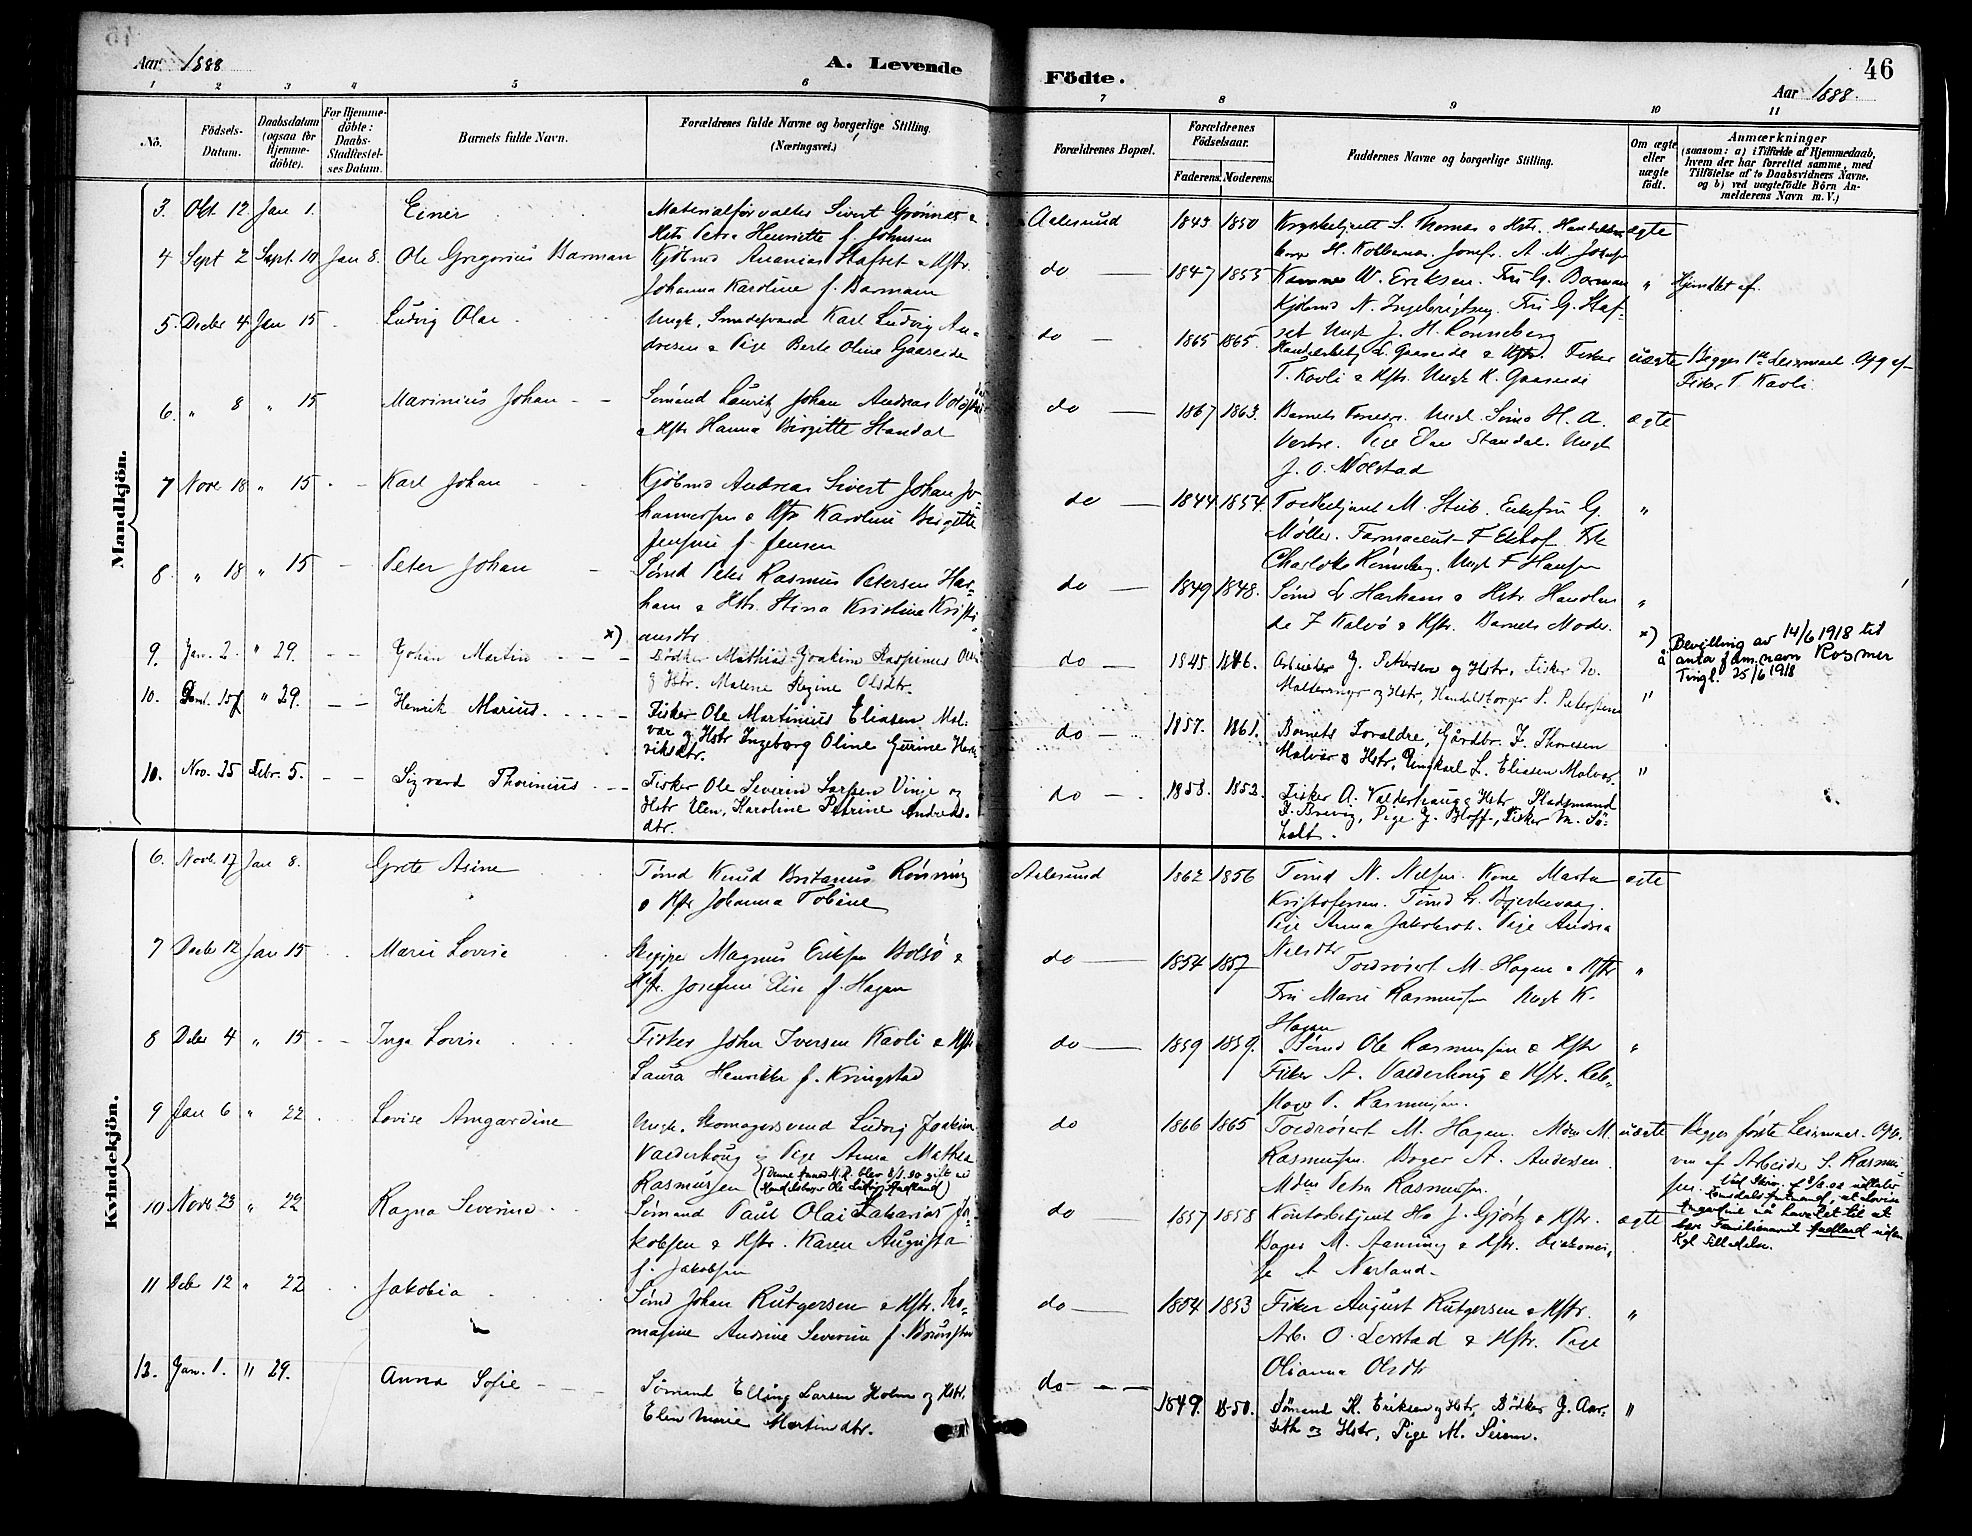 Aar 1888
A. Levende
Födte.
46
Aar 1888.
1 2 3 4 5 6 7 8 9 10 11
No.
Födsels-Datum.
Daabsdatum (ogsaa for Hjemme-döbte).
For Hjemme-döbte: Daabs-Stadfæstel-ses Datum.
Barnets fulde Navn.
Forældrenes fulde Navne og borgerlige Stilling.
(Næringsvei.)
Forældrenes Bopæl.
Forældrenes Födselsaar.
Faderens. Moderens.
Faddernes Navne og borgerlige Stilling.
Om ægte eller uægte födt.
Anmærkninger
(saasom: a) i Tilfælde af Hjemmedaab, hvem der har forrettet samme, med Tilföielse af to Daabsvidners Navne, og b) ved uægtefödte Börn An-melderens Navn m. V.)
Mandkjön.
3. Okt. 12. Jan 1. Einer
Materialforvalter Sivert Grønnes &
Hstr Petra Henriette f. Johnsen
Aalesund 1843 1850
ægte
4 Sept 2 Sept. 14 Jan 8. Ole Gregorius Barman
Kjöbmd Ananias Stafset & Hstr.
Johanna Karoline f. Barmann
do 1847 1853
Kammer W. Eriksen. Fru G. Barman
Kjöbmd N. Ingebrigtsen. Fru G. Staf-
set Ungk J. H. Rönneberg
" Hjemdbt af.
5. Decber 4. Jan 15 Ludvig Olai
Ungk. Smedesvend Karl Ludvig An-
dresen & Pige Berte Oline Gaaseide
do 1865 1865.
Handelsbetj L. Gaaseide & Hstr. Fisker
T. Kavli & Hstr. Ungk K. Gaaseide
uægte Begges 1ste Leiermaal. Opg af
Fisker T. Kavli.
6. " 8 " 15 Marinius Johan
Sömand Lauritz Johan Andreas
& Hstr Hanna Birgitte Standal
do 1867 1863.
Barnets Forældre. Ungk. Sömd H. A.
Pige Standal. Ungk
J. O. Molstad
ægte
7 Novr 18 " 15 Karl Johan
Kjöbmd Andreas Sivert Johan Jo-
hannessen & Hstr Karoline Birgitte
f. Jensen
do 1844 1854.
Toldbetjent M. Stub. Enkefru G.
Møller. Farmaceut F Ekhof. Frk
Charlotte Rönneberg. Ungk F Hansen
"
8. " 18 " 15 Peter Johan
Sömd Peter Rasmus Petersen Har-
ham & Hstr. Stina Kristine Kristi
ansdtr.
do 1849 1848.
Sömd L Harham & Hstr Handlen
de Z Kalvö & Hstr. Barnets Moder.
"
9. Jan. 2. " 29. Johan Martin x)
Bödker Mathias Joakim Raspinus Olsen
& Hstr. Malene Regine Olsdtr.
do 1845 1846.
Arbeider J. Pettersen og Hstr, Fisker
og Hstr, Handelsborger P. Petersen
"
x) Bevilling av 14/6 1918 til
å anta fam.navn Rosmer
Tingl. 25/6 1918
10. 15 " 29. Henrik Marius.
Fisker Ole Martinius Eliasen Mal-
vær og Hstr Ingeborg Oline Gurine Hen-
riksdtr.
do 1857. 1861.
Barnets Forældre, Gårdbr. Z. Thoresen
Malvær og Hstr, Ungkarl L. Eliasen Malvær.
"
10. Nov. 25 Febr. 5. Sigvard Thorinius
Fisker Ole Severin Larssen Vinje og
Hstr Elen, Karoline Petrine Andreas-
dtr.
do 1853. 1852.
Fisker A. Valderhaug & Hstr, Pladsmand
Z. Brevig, Pige J. Bloff, Fisker M. Sö-
holt.
Kvindekjön.
6. Novbr. 17 Jan 8. Grete Asine
Tömd Knud Britanus Rönning
& Hstr Johanna Tobine
Aalesund 1862 1856
Tömd N. Nilsen. Kone Marta
Kristofersen. Tömd L. Bjerkevaag.
Pige Anna Jakobsdt. Pige Andrea
Nilsdtr
ægte
7 Decbr 12 Jan 15 Marie Lovise
Skipper Magnus Eriksen Bolsö &
Hstr. Josefine Elise f. Hagen
do 1854 1857
M. Hagen & Hstr
Fru Marie Rasmussen Ungk K.
Hagen
"
8 Decbr 4 " 15 Inga Lovise
Fisker John Iversen Kavli & Hstr
Laura Henrikke f. Kringstad
do 1859 1859.
Sömd Ole Rasmussen & Hstr
Fisker A. Valderhoug & Hstr. Reb-
P. Rasmussen.
"
9 Jan 6 " 22 Lovise Amgardine
Ungk. Skomagersvend Ludvig Joakim
Valderhoug & Pige Anna Mathea
Rasmussen (Denne Anna M. R. blev 8/1.90 gift m
Handelsborger Ole Ludvig Aadland)
do 1866 1865
M. Hagen. Mdm M.
Rasmussen. Bager A. Andersen
Mdm Petra Rasmussen.
uægte Begges første Leiermaal. Opg.
ven af Arbeider S. Rasmus-
sen.
Romsdals Amtmand, at Lovise
Amgardine må have Ret til at
bære Familienavnet Aadland uden
Kgl Tilladelse.
10 Novbr 23 " 22 Ragna Severine
Sömand Paul Olai Zakarias Ja-
kobsen & Hstr. Karen Augusta
f. Jakobsen
do 1857 1858
Kontorbetjent J. Gjörtz & Hstr.
Bager M. Aanning & Hstr. Diakonis-
se A Nerland.
ægte
11 Decbr 12 " 22 Jakobia
Sömd Johan Rutgersen & Hstr. Tho-
masine Andrine Severine f.
do 1854 1853
Fisker August Rutgersen & Hstr.
Arb. O. Lerstad & Hstr. Pige
Olianna Olsdtr
"
12. Jan. 1. " 29. Anna Sofie
Sömand Elling Larsen Holm og Hstr.
Elen Marie Martinsdtr.
do 1849. 1850.
Sömand K. Eriksen og Hstr, Bödker J. Aar-
seth og Hstr, Pige M. Seiem.
"